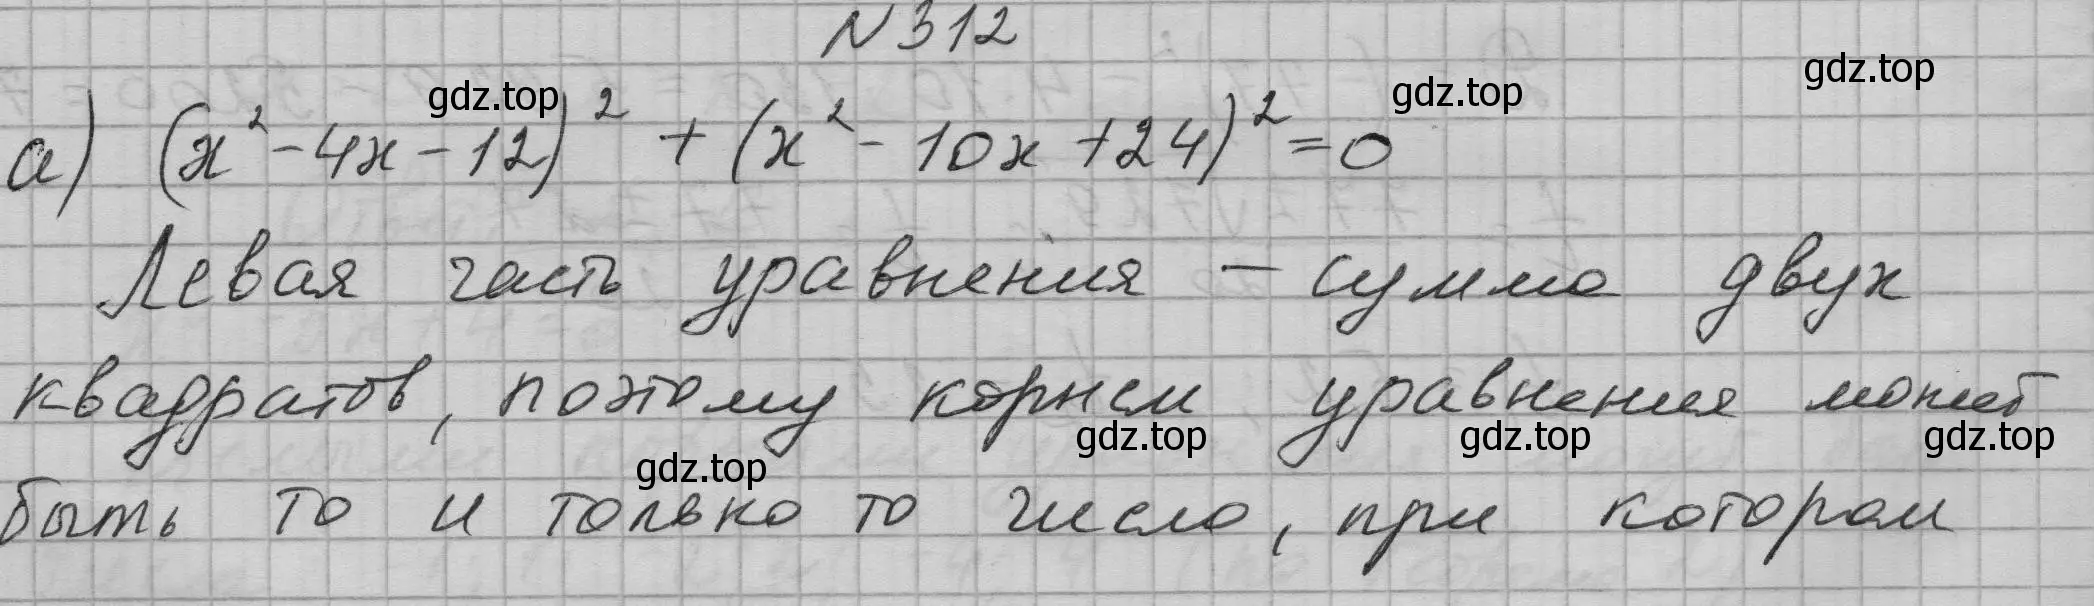 №312
gdz.top gdz.top gdz.top
а) (x²-4x-12)² + (x²-10x+24)²=0
Левая часть уравнения - сумма двух
квадратов, поэтому корнем уравнения может
gdz.top gdz.top gdz.top gdz.top
быть то и только то число, при котором